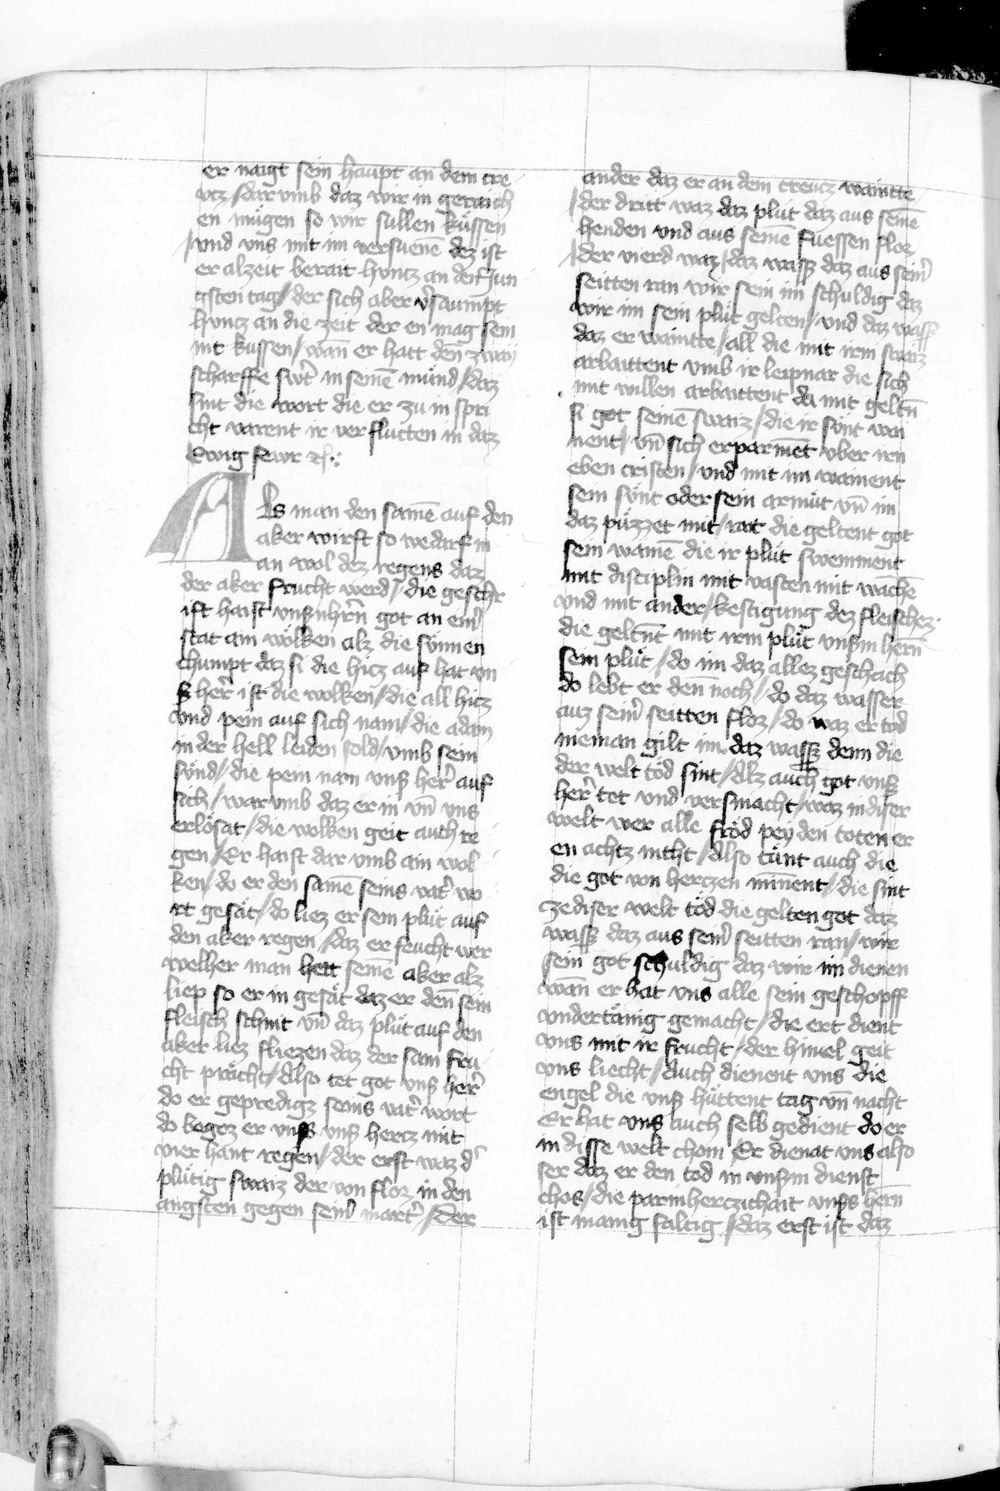 er naigt sein haupt an dem cre
vtz / dar vmb daz wir in geraich
en mügen so wir süllen küssen
/ vnd vns mit im versuenē dez ist
er alzeit berait huntz an den Jun
gsten tag / der sich aber v̾saumpt
huntz an die zeit der en mag sein
nit kussen / wan̄ er hatt den zwai
scharffe swt̾ in seinē münd / daz
sint die wort die er zu in spri
cht varent ir ver flucten in daz
Ewig fewr
Als man den samē auf den
aker wirft so wedarf m
an wol dez regens daz
der aker frucht werd / die geschr
ift haist vnßn hr̄n got an eim̾
stat ain wolken alz die sünnen
chumpt daz si die hicz auf hat vn
ß her̾ ist die wolken / die all hicz
vnd pein auf sich nam / die adam
in der hell leiden sold / vmb sein
sünd / die pein nam vnß her̾ auf
sich / war vmb daz er in vn̄ vns
erlösat / die wolken geit auch re
gen / Er haist dar vmb ain wol
ken / do er den samē seins vat̾ wo
rt gesät / do liez er sein plüt auf
den aker regen / daz er feucht wer
welher man hett seinē aker alz
liep so er in gesät daz er den̄ sein
fleisch schnit vn̄ daz plüt auf den
aker liez fliezen daz der sam fru
cht prächt / Also tet got vnß her̾
do er geprediget seins vat̾ wort
do begoz er vnß vnß hercz mit
vier hant regen / der erst waz d̾
plütig swaiz der von floz in den
angsten gegen sein̾ mart̾ / Der
ander daz er an dem creucz wainte
/ der dritt waz daz plüt daz aus seinē
henden vnd aus seinē fuessen floz
/ der vierd waz / daz wasß daz aus sein̾
seitten ran wir sein im schuldig daz
wir im sein plüt gelten / vnd daz wasß
daz er wainte / all die mit irm swaiz
arbaittent vmb ir leipnar die sich
mit willen arbaittent da mit geltn̄
si got seinē swaiz / die ir sünt wai
nent / vn̄ sich erparmēt vber irn
eben cristen / vnd mit im wainent
sein sünt oder sein armüt vn̄ im
daz püzzet mit rat die geltent got
sein wainē die ir plüt swemment
mit disciplin mit vasten mit wachē
vnd mit ander / kestigung dez fleischez
die geltn̄t mit irm plüt vnßm hern̄
sein plüt / do im daz allez geschach
do lebt er den̄ noch / do daz wasser
auz sein̾ seitten floz / do waz er tod
nieman gilt im daz wasß denn die
der welt tod sint / Alz auch got vnß
her̾ tet vnd versmacht / waz in diser
welt wer alle fröd pey den toten er
en achtz nicht / Also tünt auch die
die got von herczen minnent / die sint
ze diser welt töd die gelten got daz
wasß daz aus sein̾ seitten ran / wir
sein got schuldig daz wir im dienen
wan̄ er hat vns alle sein geschopff
vndertänig gemacht / die ert dient
vns mit ir frucht / der himel geit
vns liecht / Auch dienent vns die
engel die vnß hüttent tag vn̄ nacht
Er hat vns auch selb gedient do er
in disse welt chom Er dienat vns also
ser daz er den tod in vnßm dienst
chos / die parmherczichait vnßs hern̄
ist manig faltig / daz erst ist daz